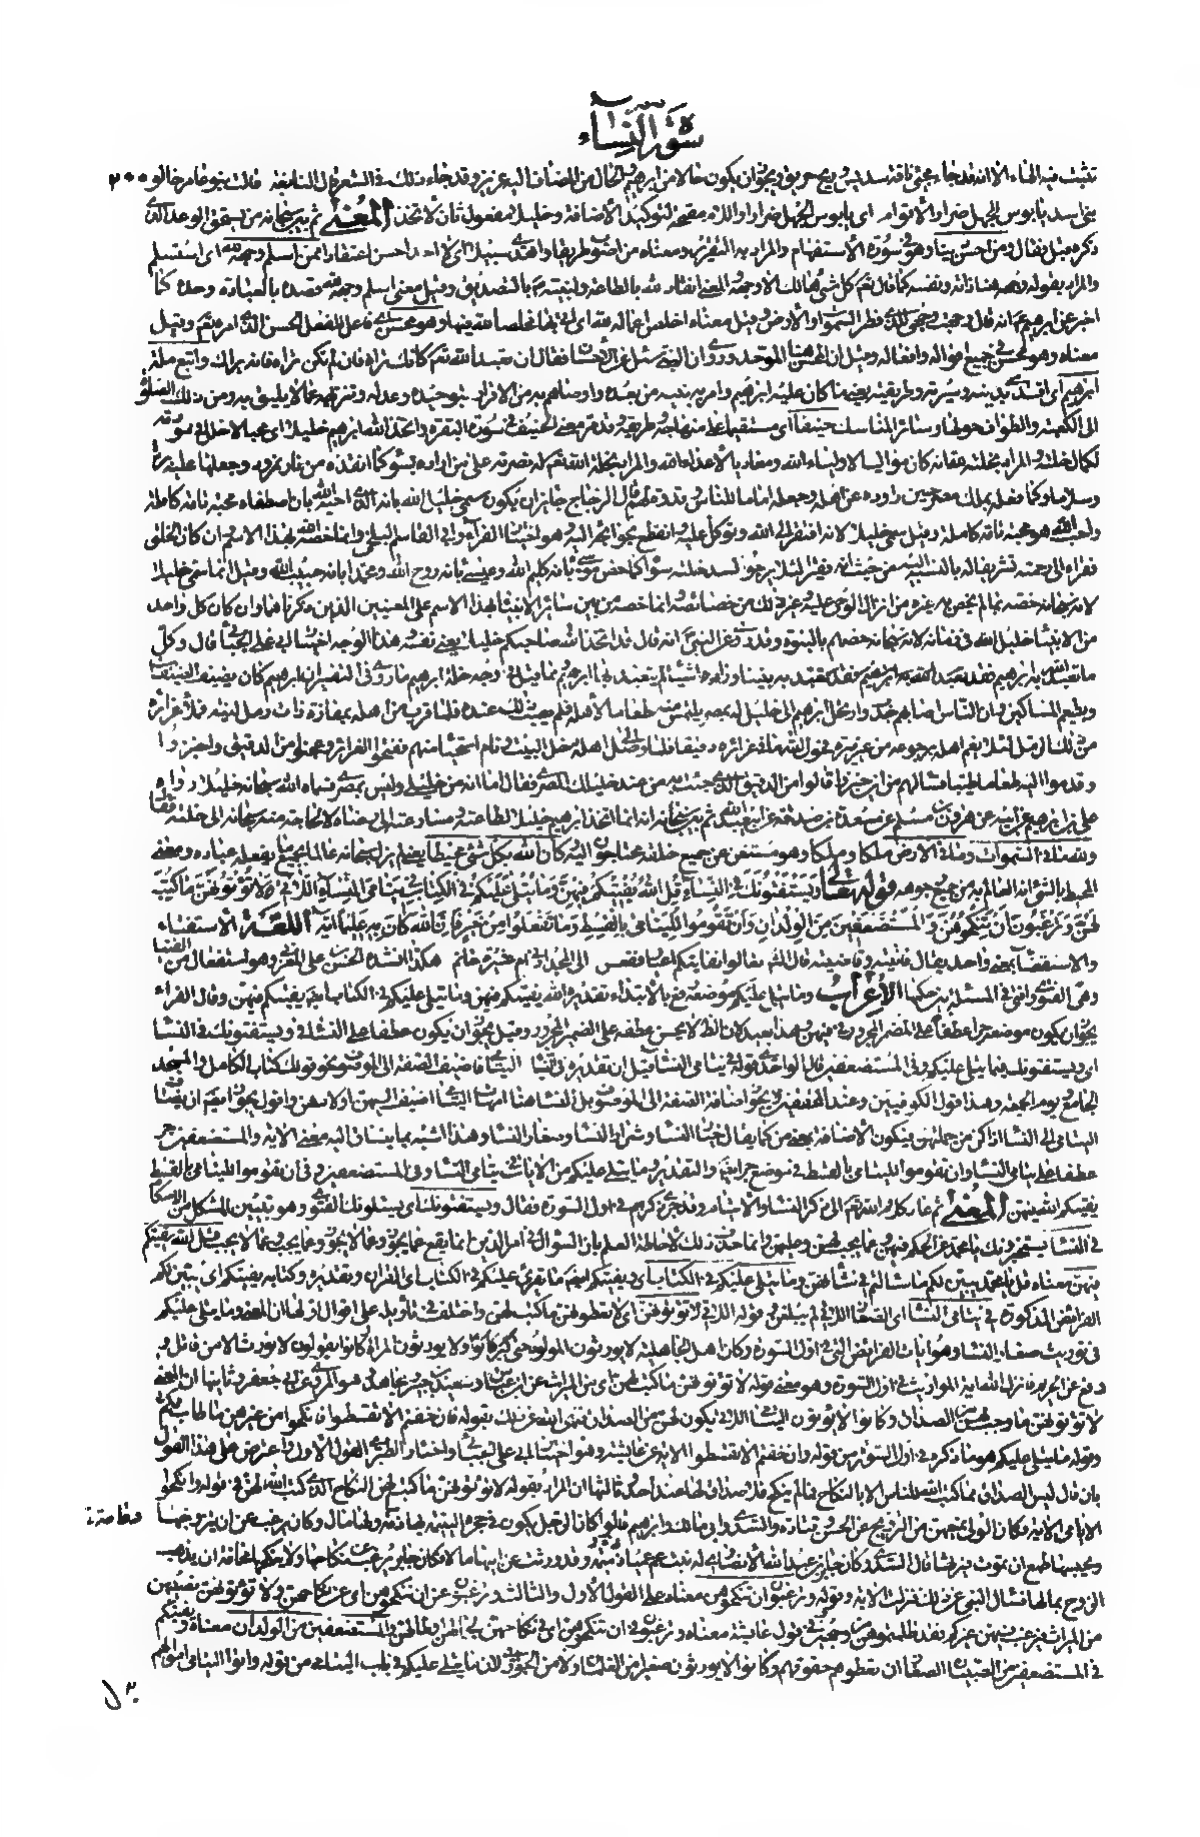 سورة النساء
تثبت فيه الهاء الا انه قد جاء مجئ ناقة سديس وريح خريق ويجوز ان يكون حالا من ابرهيم والحال من المضاف اليه عزيز وقد جاء ذلك في الشعر قال النابغة قالت بنو عامر خالوا
بني اسد يا بوس للجهل ضرارا لاقوام اى يا بوس الجهل ضرارا واللام مقحمة لتوكيد الاضافة وخليلا مفعول ثان لاتخذ المعنى ثم بين سبحانه من يستحق الوعد الذي
ذكره قبل فقال ومن احسن دينا وهو في صورة الاستفهام والمراد به التقرير ومعناه من اصوب طريقا واهدى سبيلا اى لا احد احسن اعتقادا ممن اسلم وجهه لله اى استسلم
والمراد بقوله وجهه هنا ذاته ونفسه كما قال تعالى كل شئ هالك الا وجهه والمعنى انقاد لله بالطاعة ولنبيه بالتصديق وقيل معنى اسلم وجهه لله قصده بالعبادة وحده كما
اخبر عن ابرهيم انه قال وجهت وجهي للذي فطر السموات والارض وقيل معناه اخلص اعماله لله اى اتى بها مخلصا لله فيها وهو محسن اى فاعل للفعل الحسن الذي امره الله تعالى وقيل
معناه وهو محسن في جميع اقواله وافعاله وقيل ان المحسن هنا الموحد وروى ان النبي سئل عن الاحسان فقال ان تعبد الله تعالى كانك تراه فان لم تكن تراه فانه يراك واتبع ملة
ابرهيم اى اقتدى بدينه وسيرته وطريقته يعني ما كان عليه ابرهيم وامر به بنيه من بعده واوصاهم به من الاقرار بتوحيده وعدله وتنزيهه عما لا يليق به ومن ذلك الصلوة
الى الكعبة والطواف حولها وسائر المناسك حنيفا اى مستقيما على منهاجه وطريقه وقد مر معنى الحنيف في سورة البقرة واتخذ الله ابرهيم خليلا اى محبا لا خلل في مودته
لكمال خلته والمراد بخلته لله انه كان مواليا لاولياء الله ومعاديا لاعداء الله والمراد بخلة الله تعالى له نصرته على من اراده بسوء كما انقذه من نار نمرود وجعلها عليه بردا
وسلاما وكما فعله بملك مصر حين راوده عن اهله وجعله اماما للناس وقدوة لهم قال الزجاج جايز ان يكون سمى خليل الله بانه الذي احبه الله بان اصطفاه محبة تامة كاملة
واحب الله هو محبة تامة كاملة وقيل سمى خليلا لانه افتقر الى الله وتوكل عليه وانقطع بحوايجه اليه وهو اختيار الفراء وابي القاسم البلخي وانما خصه الله بهذا الاسم وان كان الخلق
فقراء الى رحمته تشريفا له بالنسبة اليه من حيث انه فقير اليه لا يرجو لسد خلته سواه كما خص موسى بانه كليم الله وعيسى بانه روح الله ومحمدا بانه حبيب الله وقيل انما سمى خليلا
لانه سبحانه خصه بما لم يخص به غيره من انزال الوحي عليه وغير ذلك من خصائصه وانما خصه من بين سائر الانبياء بهذا الاسم على المعنيين الذين ذكرناهما وان كان كل واحد
من الانبياء خليل الله في زمانه لانه سبحانه خصهم بالنبوة وقد روى عن النبي انه قال قد اتخذ الله صاحبكم خليلا يعني نفسه وهذا الوجه اختيار ابي علي الجبائي قال وكل
ما تعبد الله به ابرهيم فقد تعبد به نبينا وزاده اشياء لم يتعبد بها ابرهيم ومما قيل في وجه خلة ابرهيم ما روى في التفسير ان ابرهيم كان يضيف الضيفان
ويطعم المساكين وان الناس اصابهم جدب فارتحل ابرهيم الى خليل له بمصر يلتمس منه طعاما لاهله فلم يصب ذلك عنده فلما قرب من اهله بمفازة ذات رمل لينة فملأ غرائره
من ذلك الرمل لئلا يغم اهله برجوعه من غير ميرة فحول الله ما في غرائره دقيقا فلما وصل الى اهله دخل البيت ونام استحياء منهم ففتحوا الغرائر وعجنوا من الدقيق وخبزوا
وقدموا اليه طعاما طيبا فسالهم من اين خبزوا قالوا من الدقيق الذي جئت به من عند خليلك المصري فقال اما انه من خليلي وليس بمصري فسماه الله سبحانه خليلا رواه
علي بن ابرهيم عن ابيه عن هرون بن مسلم عن مسعدة بن صدقة عن ابي عبد الله ثم بين سبحانه انه انما اتخذ ابرهيم خليلا لطاعته ومسارعته الى رضاه لا لحاجة منه سبحانه الى خلته فقال
ولله ما في السموات وما في الارض ملكا وملكا وهو مستغن عن جميع خلقه والخلق محتاجون اليه وكان الله بكل شئ محيطا يعني لم يزل سبحانه عالما بجميع ما يفعله عباده ومعنى
المحيط بالشئ انه العالم به من جميع وجوهه قوله تعالى ويستفتونك في النساء قل الله يفتيكم فيهن وما يتلى عليكم في الكتاب في يتامى النساء اللاتي لا تؤتونهن ما كتب
لهن وترغبون ان تنكحوهن والمستضعفين من الولدان وان تقوموا لليتامى بالقسط وما تفعلوا من خير فان الله كان به عليما آية اللغة الاستفتاء
والاستقضاء بمعنى واحد يقال فاتيته وقاضيته قال الشاعر تعالوا نفاتيكم اعيا وفقعس الى المجد ادنى ام عشيرة حاتم هكذا انشده الحسن بن علي المغربي وهو استفعال من الفتيا
وهي الفتوى وافتى في المسئلة بين حكمها الاعراب وما يتلى عليكم موضعه رفع بالابتداء تقديره الله يفتيكم فيهن وما يتلى عليكم في الكتاب ايضا يفتيكم فيهن وقال الفراء
يجوز ان يكون موضعه جرا عطفا على المضمر المجرور في فيهن وهذا بعيد لان الظاهر لا يحسن عطفه على الضمير المجرور وقيل يجوز ان يكون عطفا على النساء في ويستفتونك في النساء
اى ويستفتونك فيما يتلى عليكم وفي المستضعفين قال الواحدي قوله في يتامى النساء قيل ان تقديره في النساء اليتامى فاضيفت الصفة الى الموصوف نحو قولك كتاب الكامل والمسجد
الجامع ويوم الجمعة وهذا قول الكوفيين وعند البصريين لا يجوز اضافة الصفة الى الموصوف بل النساء هنا امهات اليتامى اضيف اليهن اولادهن واقول يجوز ايضا ان يضاف
اليتامى الى النساء اذا كن من جملتهن فتكون الاضافة بمعنى من كما يقال خيار النساء وشرار النساء وصغار النساء وهذا اشبه بما ينساق اليه معنى الاية والمستضعفين جر
عطفا على يتامى النساء وان تقوموا لليتامى بالقسط في موضع جر ايضا والتقدير وما يتلى عليكم من الايات في يتامى النساء وفي المستضعفين وفي ان تقوموا لليتامى بالقسط
يفتيكم الله فيهن المعنى ثم عاد كلام الله تعالى الى ذكر النساء والايتام وقد جرى ذكرهم في اول السورة فقال ويستفتونك اى يسئلونك الفتوى وهو تبيين المشكل من الاحكام
في النساء يستخبرونك يا محمد عن الحكم فيهن وعما يجب لهن وعليهن وانما حذف ذلك لاحاطة العلم بان السؤال في امر الدين انما يقع عما يجوز وعما لا يجوز وعما يجب وعما لا يجب قل الله يفتيكم
فيهن معناه قل يا محمد الله يبين لكم ما سالتم في شأنهن وما يتلى عليكم في الكتاب اى ويفتيكم ايضا ما يقرأ عليكم في الكتاب اى القران وتقديره وكتابه يفتيكم اى يبين لكم
الفرائض المذكورة في يتامى النساء اى الصغار اللاتي لم يبلغن وقوله اللاتي لا تؤتونهن اى لا تعطونهن ما كتب لهن واختلف في تأويله على اقوال اولها ان المعنى وما يتلى عليكم
في توريث صغار النساء وهو ايات الفرائض التي في اول السورة وكان اهل الجاهلية لا يورثون المولود حتى يكبر ولا يورثون المرأة وكانوا يقولون لا نورث الا من قاتل و
دفع عن الحريم فانزل الله اية المواريث في اول السورة وهو معنى قوله لا تؤتونهن ما كتب لهن اى من الميراث عن ابن عباس وسعيد بن جبير ومجاهد وهو المروى عن ابي جعفر وثانيها ان المعنى
لا تؤتونهن ما وجب لهن من الصداق وكانوا لا يؤتون اليتامى اللاتي يلون امرهن من الصداق فنهى الله عن ذلك بقوله فان خفتم الا تقسطوا فانكحوا من غيرهن ما طاب لكم
وقوله ما يتلى عليكم هو ما ذكره في اول السورة من قوله وان خفتم الا تقسطوا الاية عن عايشة وهو اختيار ابي علي الجبائي واختار الطبري القول الاول واعترض على هذا القول
بان قال ليس الصداق مما كتب الله للنساء الا بالنكاح فما لم تنكح فلا صداق لها عند احد وثالثها ان المراد بقوله لا تؤتونهن ما كتب لهن النكاح الذي كتب الله لهن في قوله وانكحوا
الايامى الاية فكان الولي يمنعهن من التزويج عن الحسن وقتادة والسدي وابي مالك وابرهيم قالوا كان الرجل يكون في حجره اليتيمة بها دمامة ولها مال وكان يرغب عن ان يتزوجها
ويحبسها طمع ان تموت فيرثها قال السدي وكان جابر بن عبد الله الانصاري له بنت عم عمياء دميمة وقد ورثت عن ابيها مالا وكان جابر يرغب عن نكاحها ولا ينكحها مخافة ان يذهب
الزوج بمالها فسأل النبي عن ذلك فنزلت الاية وقوله وترغبون ان تنكحوهن معناه على القول الاول والثالث وترغبون عن ان تنكحوهن اى عن نكاحهن ولا تؤتونهن نصيبهن
من الميراث فيرغب فيهن غيركم فقد ظلمتموهن من وجهين وفي قول عايشة معناه وترغبون في ان تنكحوهن اى في نكاحهن لجمالهن ومالهن والمستضعفين من الولدان معناه ويفتيكم
في المستضعفين من الصبيان الصغار ان تعطوهم حقوقهم وكانوا لا يورثون صغيرا من الغلمان ولا من الجواري لان ما يتلى عليكم في باب اليتامى من قوله واتوا اليتامى اموالهم